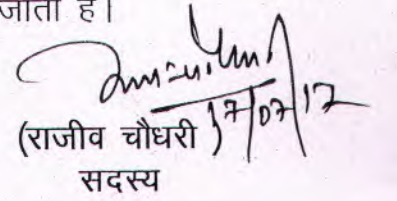 जाता है।
17/07/17
(राजीव चौधरी)
सदस्य